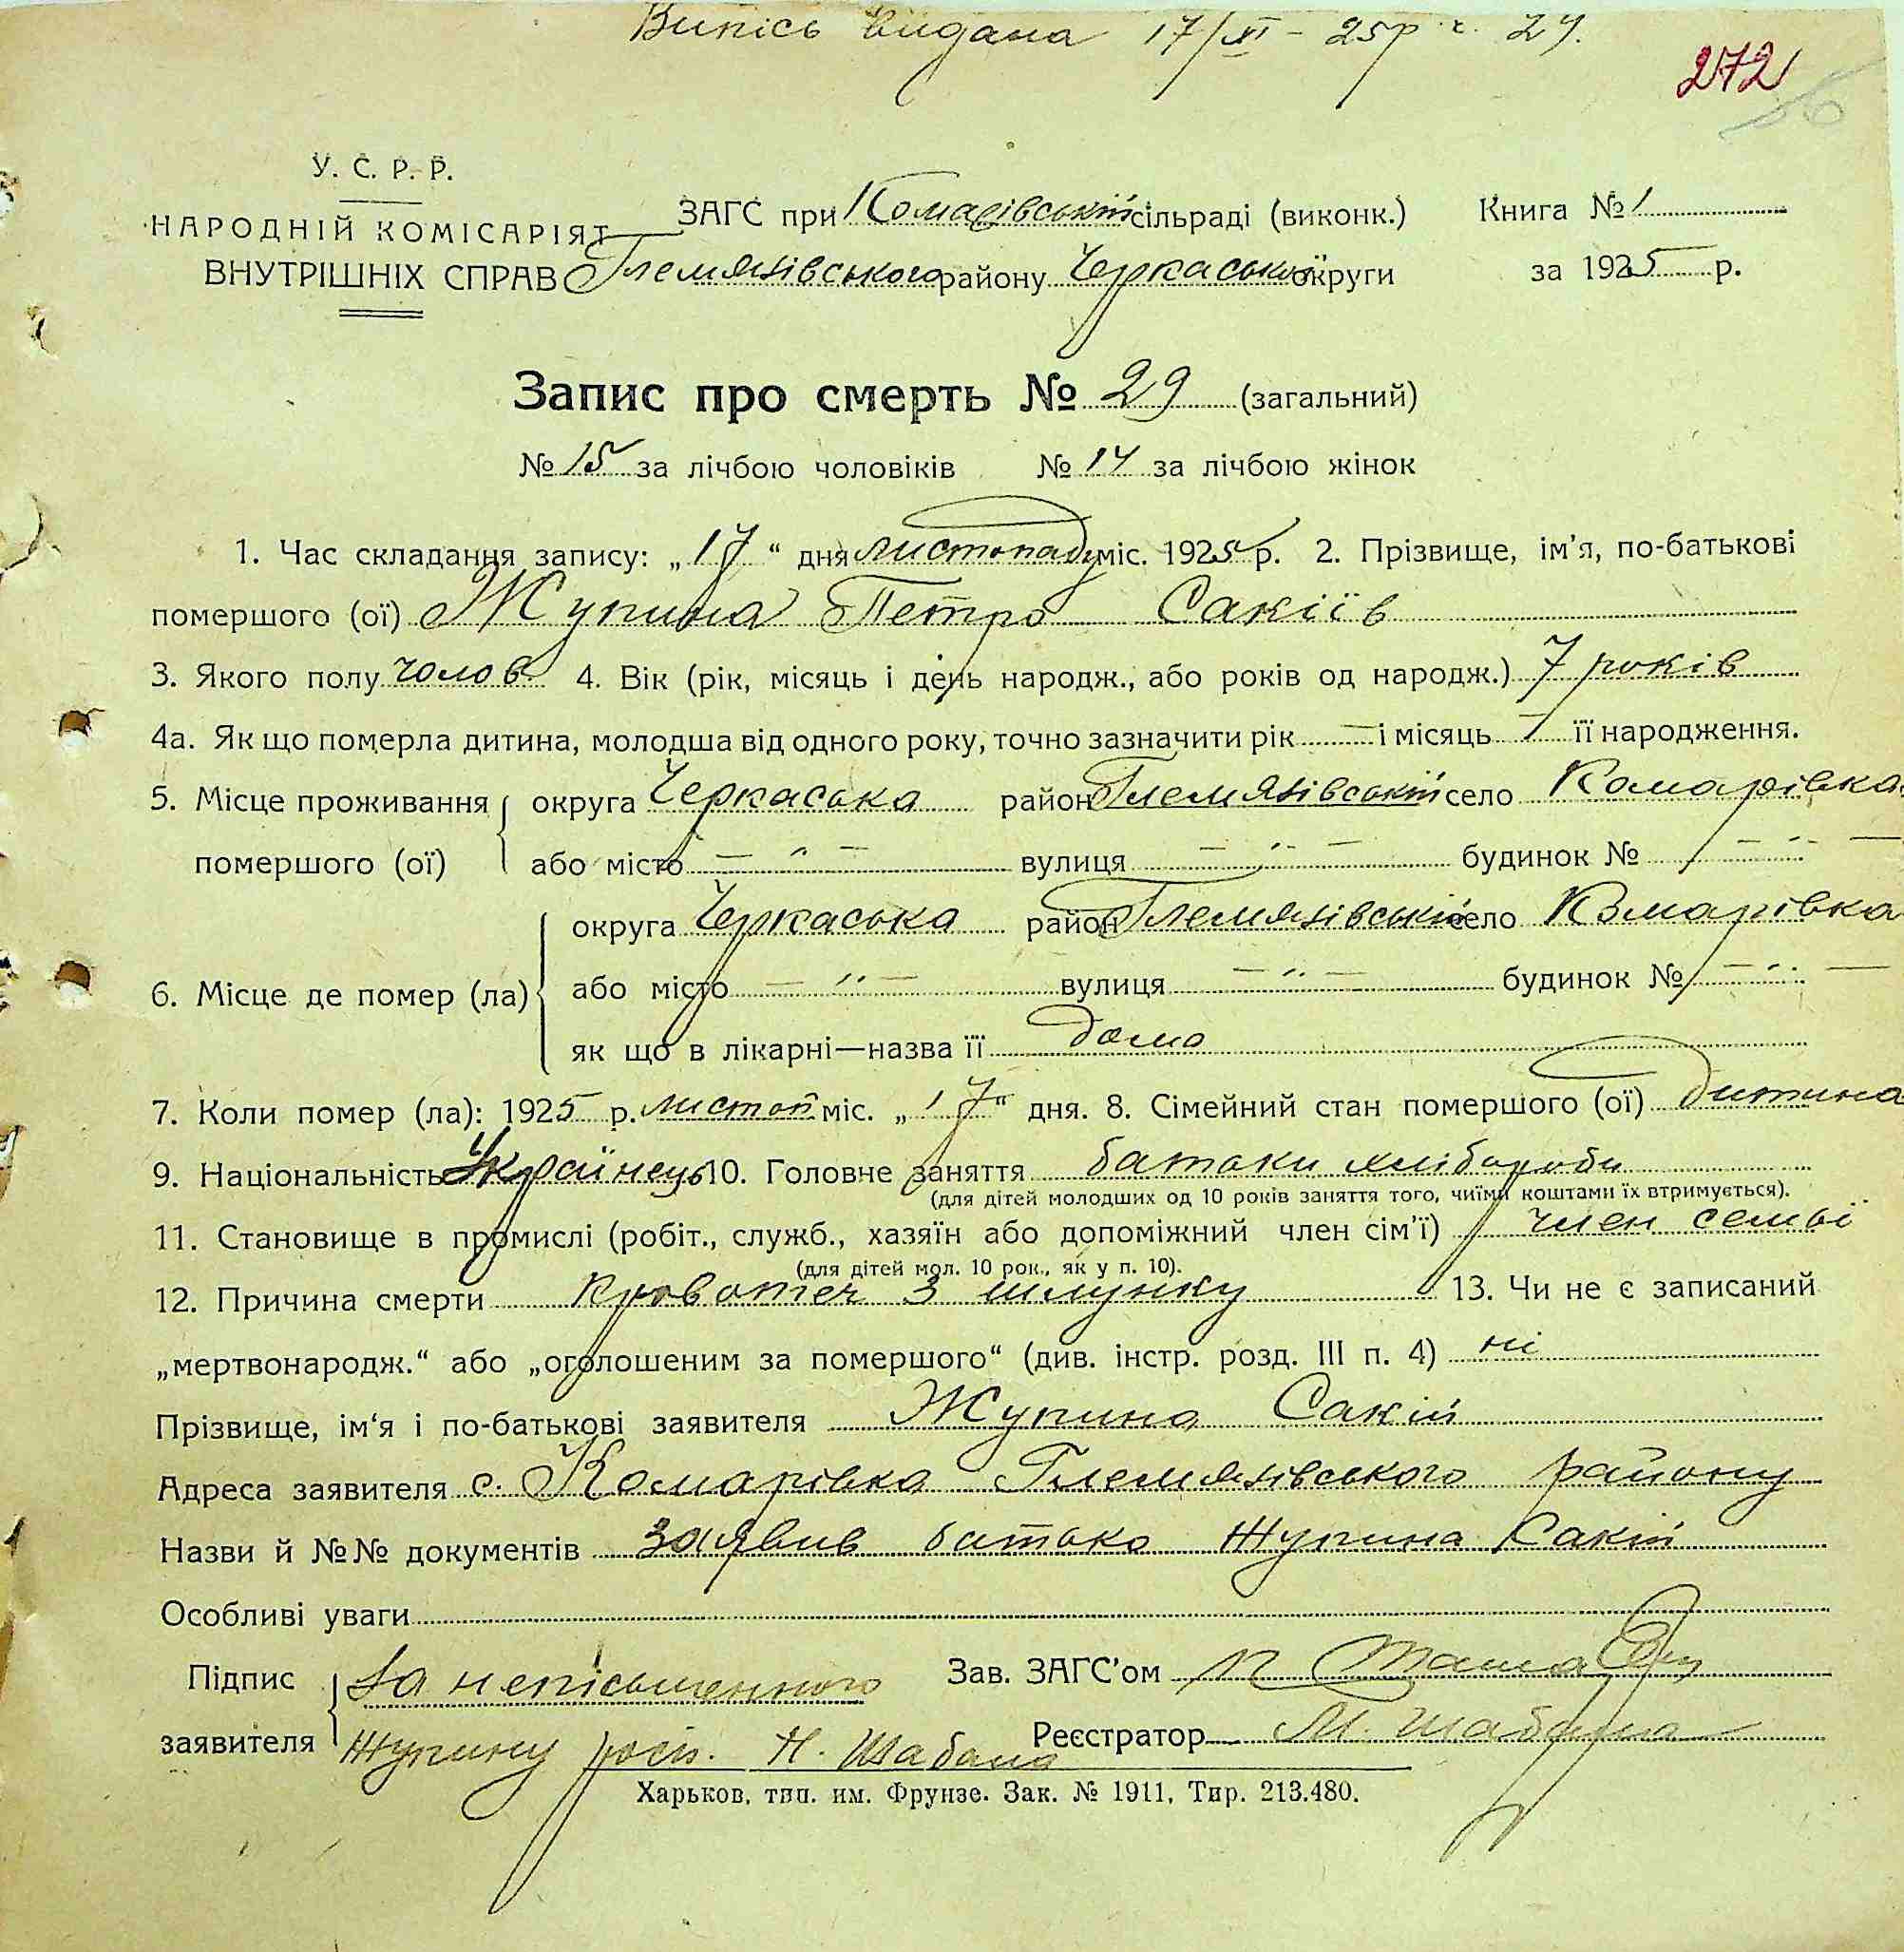 Випісь видана 17/XI - 25р ч. 29.
272
У. С. Р. Р.
НАРОДНІЙ КОМІСАРІЯТ
ВНУТРІШНІХ СПРАВ
ЗАГС при Комарівській сільраді (виконк.) Книга № 1
Гельмязівського району Черкаської округи за 1925 р.
Запис про смерть № 29 (загальний)
№ 15 за лічбою чоловіків № 14 за лічбою жінок
1. Час складання запису: „17“ дня листопаду міс. 1925 р. 2. Прізвище, ім'я, по-батькові
помершого (ої) Жупина Петро Сакіїв
3. Якого полу чолов 4. Вік (рік, місяць і день народж., або років од народж.) 7 років
4а. Як що померла дитина, молодша від одного року, точно зазначити рік — і місяць — її народження.
5. Місце проживання округа Черкаська район Глемязівський село Комарівка
помершого (ої) або місто — „ — вулиця — „ — будинок № — „ —
округа Черкаська район Глемязівський село Комарівка
6. Місце де помер (ла) або місто — „ — вулиця — „ — будинок № — „ —
як що в лікарні—назва її дома
7. Коли помер (ла): 1925 р. листоп міс. „17“ дня. 8. Сімейний стан помершого (ої) дитина
9. Національність Українець 10. Головне заняття батьки хлібороби
(для дітей молодших од 10 років заняття того, чиїми коштами їх втримується).
11. Становище в промислі (робіт., служб., хазяїн або допоміжний член сім'ї) член семьї
(для дітей мол. 10 рок., як у п. 10).
12. Причина смерти кровотеч з шлунку 13. Чи не є записаний
„мертвонародж.“ або „оголошеним за помершого“ (див. інстр. розд. III п. 4) ні
Прізвище, ім'я і по-батькові заявителя Жупина Сакій
Адреса заявителя с. Комарівка Глемязівського району
Назви й №№ документів заявив батько Жупина Сакій
Особливі уваги
Підпис за неписьменного Зав. ЗАГС'ом
заявителя Жупину росп. Н. Шабала Реєстратор М. Шабала
Харьков, тип. им. Фрунзе. Зак. № 1911, Тир. 213.480.